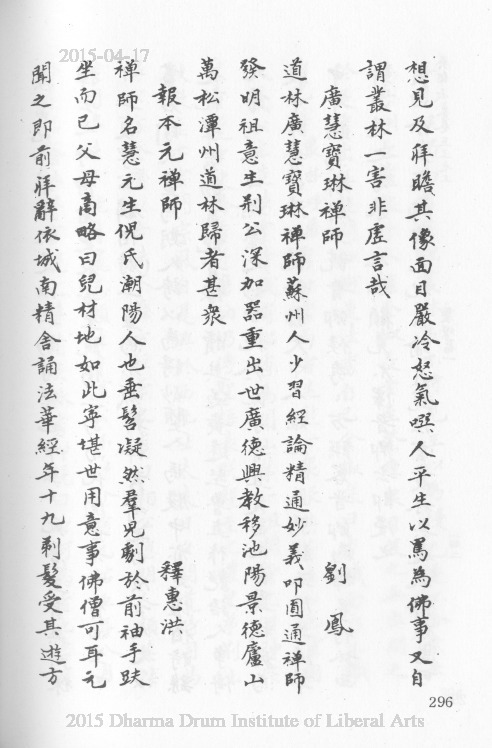 2015-04-17
想見及拜瞻其像面目嚴冷怒氣噀人平生以罵為佛事又自
謂叢林一害非虛言哉
廣慧寶琳禪師 劉鳳
道林廣慧寶琳禪師蘇州人少習經論精通妙義叩圓通禪師
發明祖意生荆公深加器重出世廣德興教移池陽景德廬山
萬松潭州道林歸者甚衆
報本元禪師 釋惠洪
禪師名慧元生倪氏潮陽人也垂髫凝然羣兒劇於前袖手趺
坐而已父母商略曰兒材地如此寧堪世用意事佛僧可耳元
聞之即前拜辭依城南精舍誦法華經年十九剃髮受具遊方
296
2015 Dharma Drum Institute of Liberal Arts